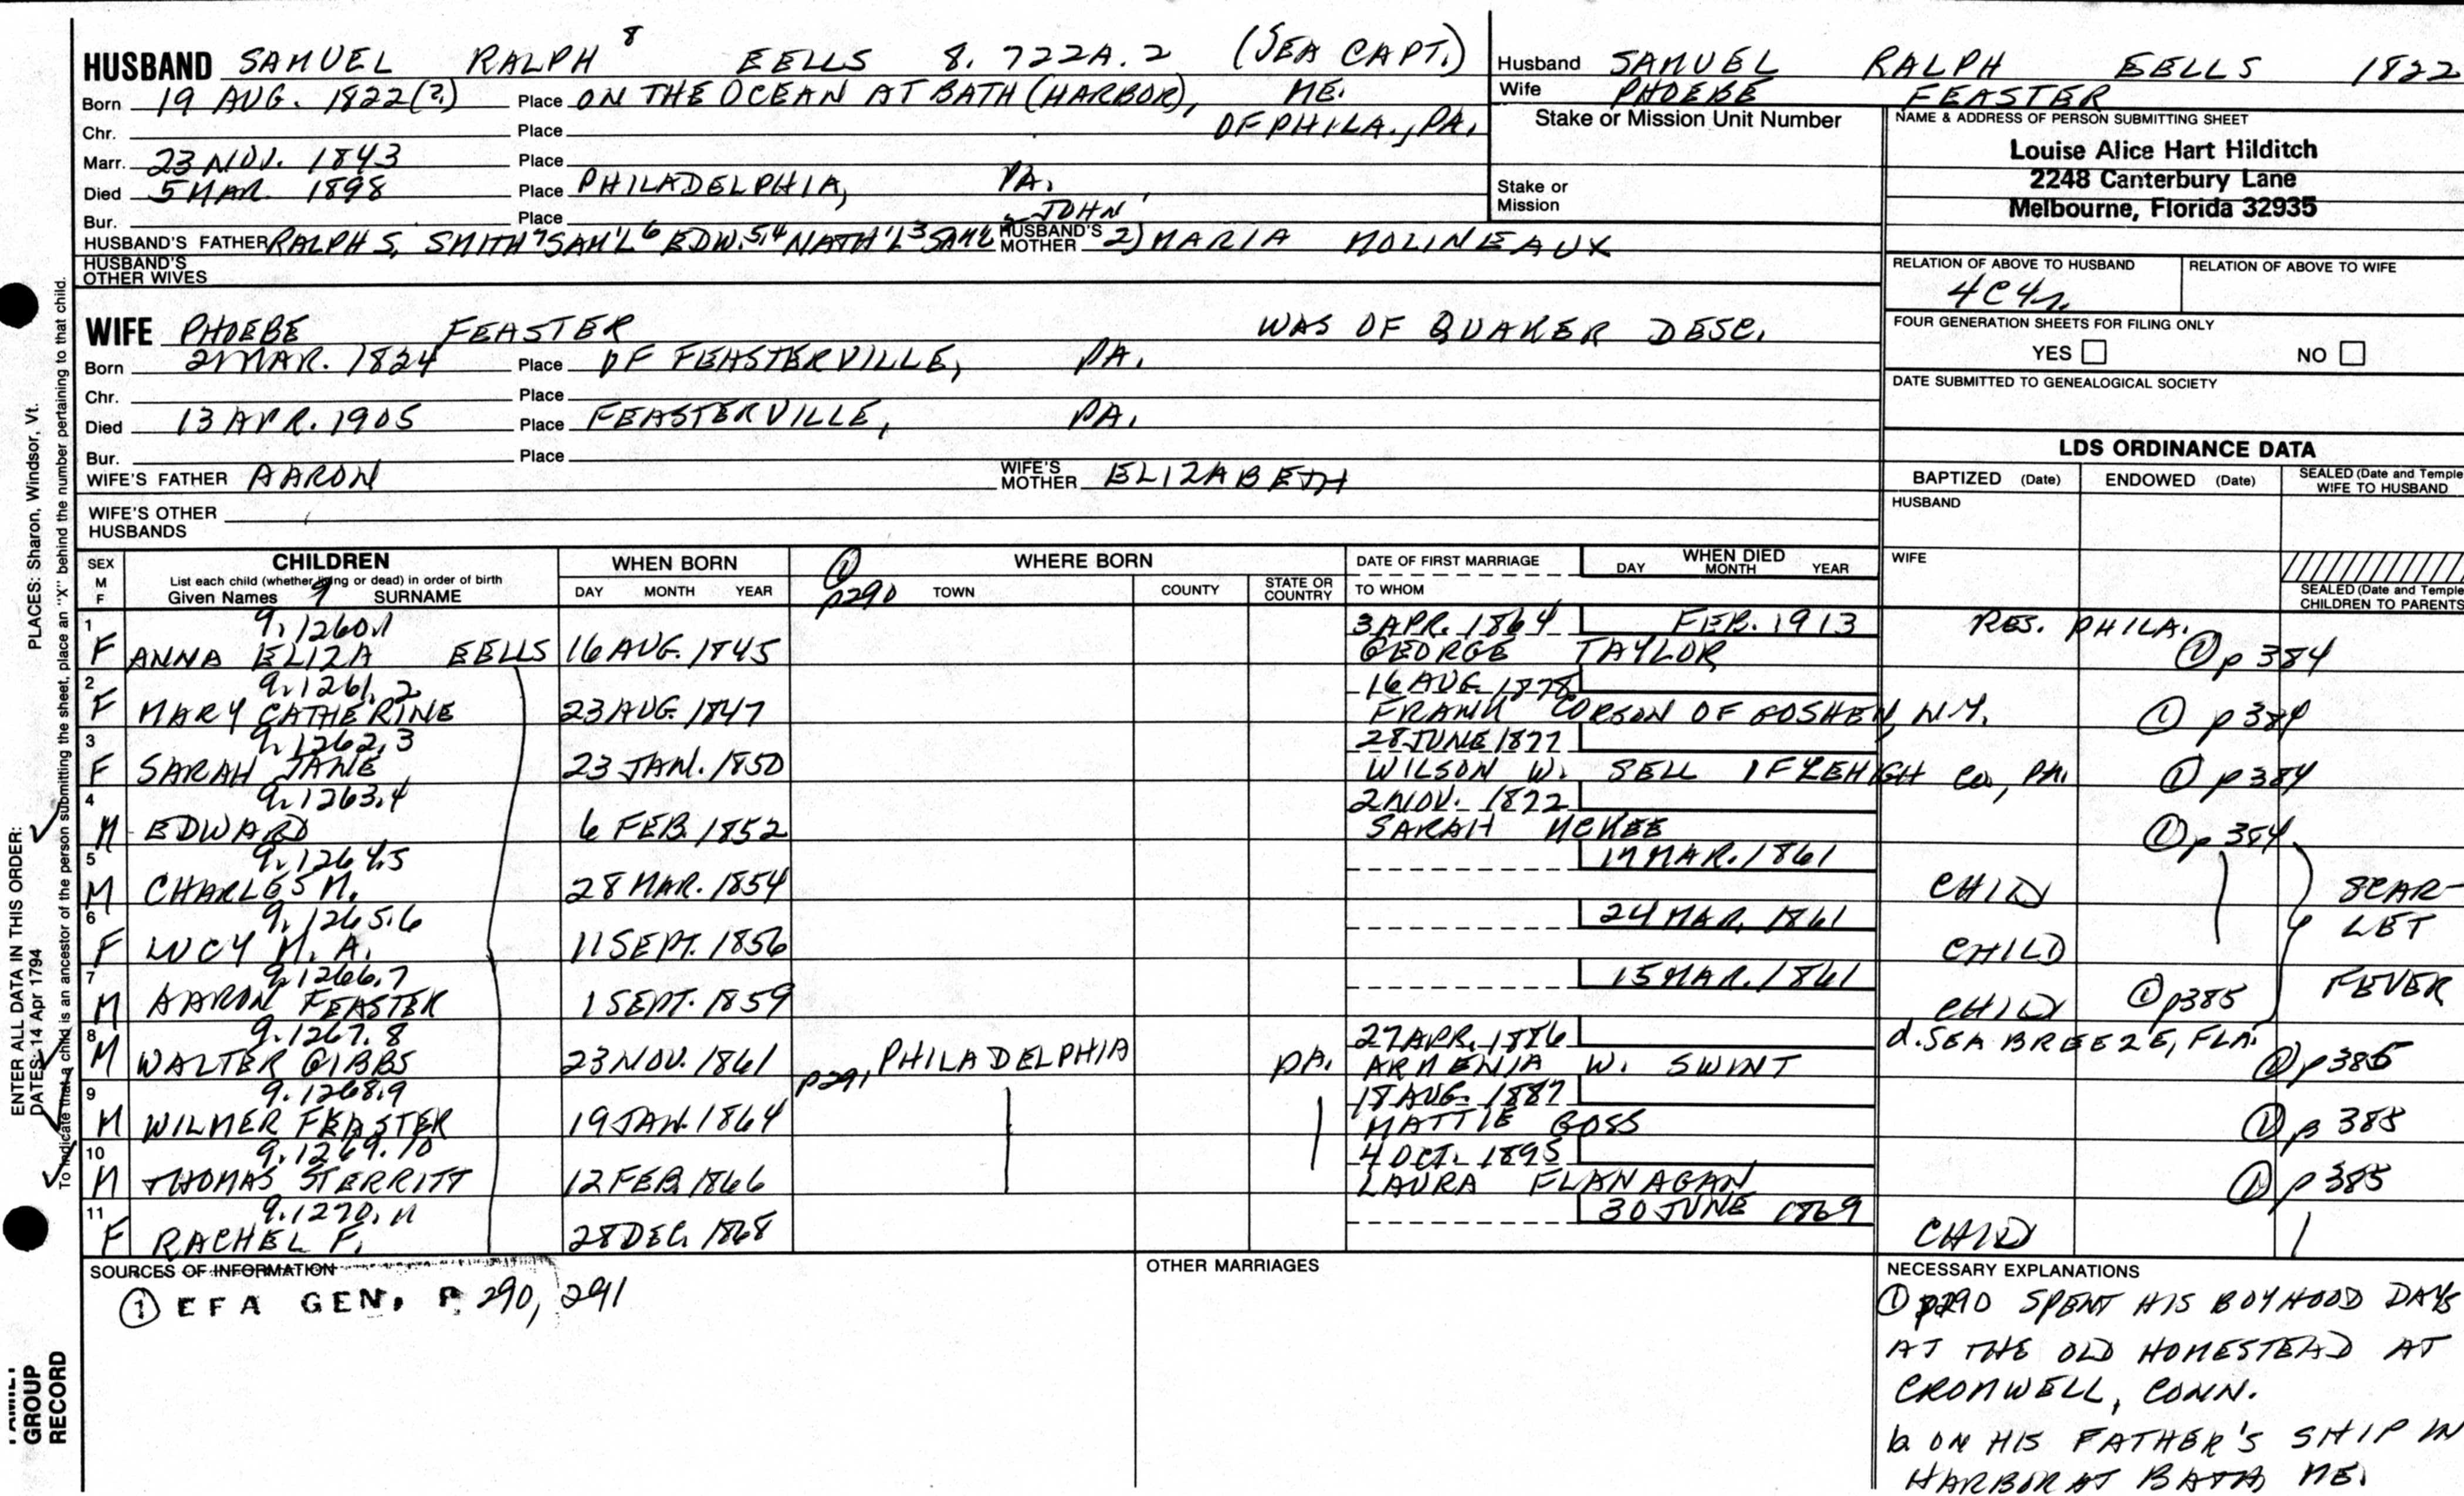 HUSBAND SAMUEL RALPH 8 EELLS 8. 722A.2 (SEA CAPT.)
Born 19 AUG. 1822(?) Place ON THE OCEAN AT BATH (HARBOR), ME.
Chr. Place OF PHILA., PA.
Marr. 23 NOV. 1843 Place
Died 5 MAR. 1898 Place PHILADELPHIA, PA.
Bur. Place
HUSBAND'S FATHER RALPH S. SMITH 7 SAM'L 6 EDW. 5,4 NATH'L 3 SAM'L 2 JOHN 1 HUSBAND'S MOTHER 2) MARIA MOLINEAUX
HUSBAND'S OTHER WIVES
Husband SAMUEL RALPH EELLS 1822
Wife PHOEBE FEASTER
Stake or Mission Unit Number
Stake or Mission
NAME & ADDRESS OF PERSON SUBMITTING SHEET
Louise Alice Hart Hilditch
2248 Canterbury Lane
Melbourne, Florida 32935
RELATION OF ABOVE TO HUSBAND RELATION OF ABOVE TO WIFE
4C4r.
FOUR GENERATION SHEETS FOR FILING ONLY
YES NO
DATE SUBMITTED TO GENEALOGICAL SOCIETY
WIFE PHOEBE FEASTER WAS OF QUAKER DESC.
Born 21 MAR. 1824 Place OF FEASTERVILLE, PA.
Chr. Place
Died 13 APR. 1905 Place FEASTERVILLE, PA.
Bur. Place
WIFE'S FATHER AARON WIFE'S MOTHER ELIZABETH
WIFE'S OTHER HUSBANDS
LDS ORDINANCE DATA
BAPTIZED (Date) ENDOWED (Date) SEALED (Date and Temple) WIFE TO HUSBAND
HUSBAND
WIFE
SEALED (Date and Temple) CHILDREN TO PARENTS
SEX M F CHILDREN WHEN BORN WHERE BORN DATE OF FIRST MARRIAGE WHEN DIED
List each child (whether living or dead) in order of birth
Given Names 9 SURNAME DAY MONTH YEAR ① p290 TOWN COUNTY STATE OR COUNTRY TO WHOM DAY MONTH YEAR
1 9.1260.1 3 APR. 1864 FEB. 1913 RES. PHILA.
F ANNA ELIZA EELLS 16 AUG. 1845 GEORGE TAYLOR ① p 384
2 9.1261.2 16 AUG. 1878
F MARY CATHERINE 23 AUG. 1847 FRANK CORSON OF GOSHEN, N.Y. ① p384
3 9.1262.3 28 JUNE 1877
F SARAH JANE 23 JAN. 1850 WILSON W. SELL OF LEHIGH Co., PA. ① p384
4 9.1263.4 2 NOV. 1872
M EDWARD 6 FEB. 1852 SARAH McKEE ① p 384
5 9.1264.5 17 MAR. 1861
M CHARLES M. 28 MAR. 1854 CHILD SCAR-
6 9.1265.6 24 MAR. 1861
F LUCY M. A. 11 SEPT. 1856 CHILD LET
7 9.1266.7 15 MAR. 1861
M AARON FEASTER 1 SEPT. 1859 CHILD ① p385 FEVER
8 9.1267.8 27 APR. 1886 d. SEA BREEZE, FLA.
M WALTER GIBBS 23 NOV. 1861 p291, PHILADELPHIA PA. ARMENIA W. SWINT ① p385
9 9.1268.9 18 AUG. 1887
M WILMER FEASTER 19 JAN. 1864 MATTIE GOSS ① p 385
10 9.1269.10 4 OCT. 1895
M THOMAS STERRITT 12 FEB. 1866 LAURA FLANAGAN ① p 385
11 9.1270.11 30 JUNE 1869
F RACHEL F. 28 DEC. 1868 CHILD
SOURCES OF INFORMATION
① EFA GEN. P. 290, 291
OTHER MARRIAGES
NECESSARY EXPLANATIONS
① p290 SPENT HIS BOYHOOD DAYS
AT THE OLD HOMESTEAD AT
CROMWELL, CONN.
b. ON HIS FATHER'S SHIP IN
HARBOR AT BATH ME.
ENTER ALL DATA IN THIS ORDER:
DATES: 14 Apr 1794 PLACES: Sharon, Windsor, Vt.
To indicate that a child is an ancestor of the person submitting the sheet, place an "X" behind the number pertaining to that child.
FAMILY
GROUP
RECORD